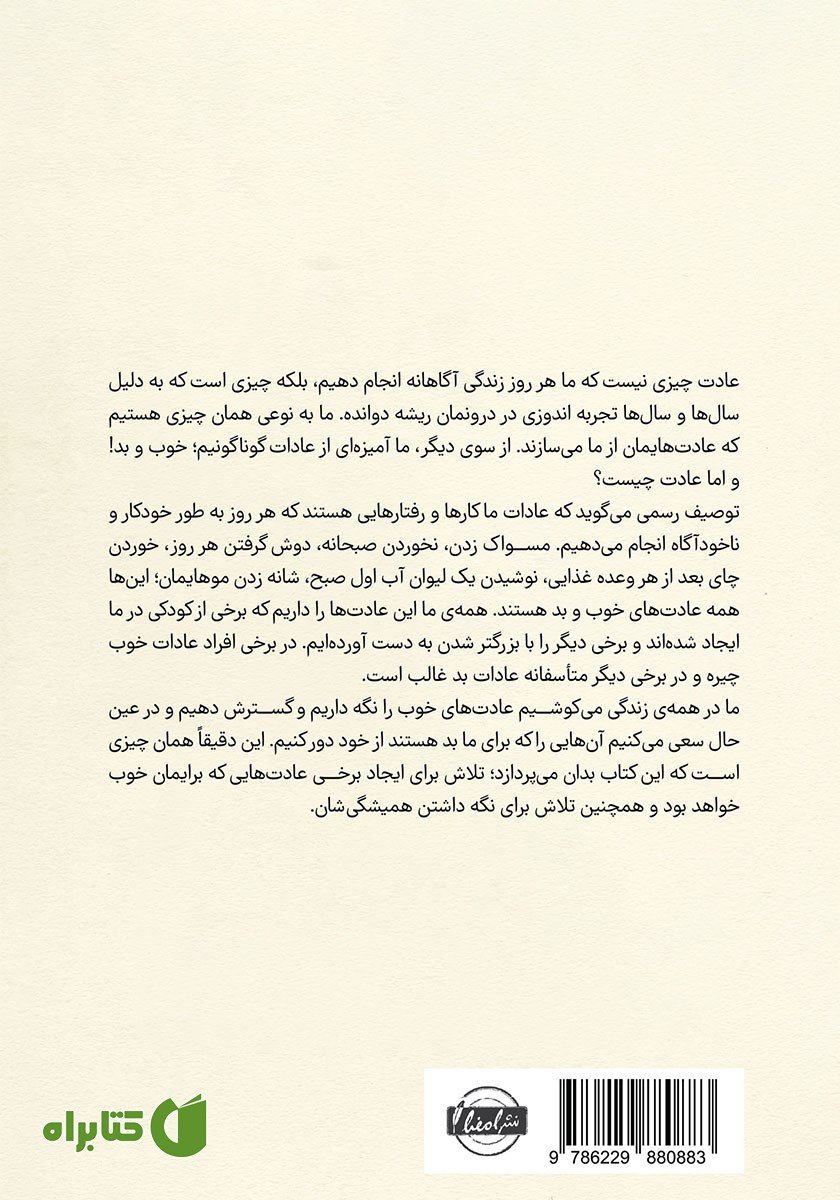 عادت چیزی نیست که ما هر روز زندگی آگاهانه انجام دهیم، بلکه چیزی است که به دلیل
سال‌ها و سال‌ها تجربه اندوزی در درونمان ریشه دوانده. ما به نوعی همان چیزی هستیم
که عادت‌هایمان از ما می‌سازند. از سوی دیگر، ما آمیزه‌ای از عادات گوناگونیم؛ خوب و بد!
و اما عادت چیست؟
توصیف رسمی می‌گوید که عادات ما کارها و رفتارهایی هستند که هر روز به طور خودکار و
ناخودآگاه انجام می‌دهیم. مسواک زدن، نخوردن صبحانه، دوش گرفتن هر روز، خوردن
چای بعد از هر وعده غذایی، نوشیدن یک لیوان آب اول صبح، شانه زدن موهایمان؛ این‌ها
همه عادت‌های خوب و بد هستند. همه‌ی ما این عادت‌ها را داریم که برخی از کودکی در ما
ایجاد شده‌اند و برخی دیگر را با بزرگتر شدن به دست آورده‌ایم. در برخی افراد عادات خوب
چیره و در برخی دیگر متأسفانه عادات بد غالب است.
ما در همه‌ی زندگی می‌کوشیم عادت‌های خوب را نگه داریم و گسترش دهیم و در عین
حال سعی می‌کنیم آن‌هایی را که برای ما بد هستند از خود دور کنیم. این دقیقاً همان چیزی
است که این کتاب بدان می‌پردازد؛ تلاش برای ایجاد برخی عادت‌هایی که برایمان خوب
خواهد بود و همچنین تلاش برای نگه داشتن همیشگی‌شان.
کتابراه
نشر
9 786229 880883